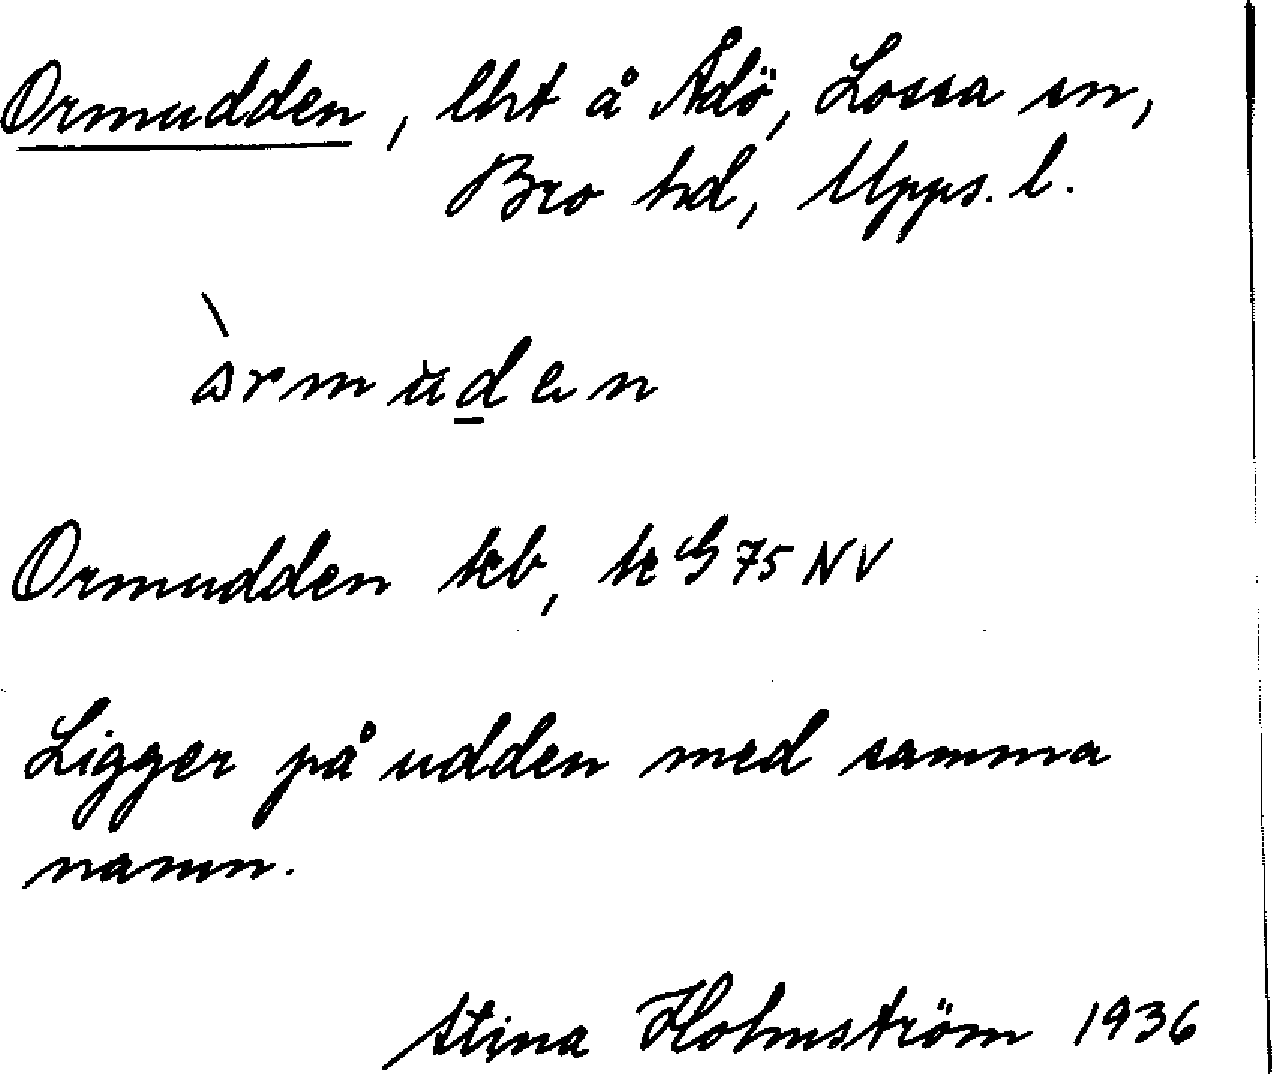 Ormudden, lht å Ådö, Lossa sn,
Bro hd, Upps. l.
Ormudden kb, k G 75 NV
Ligger på udden med samma
namn.
Stina Holmström 1936